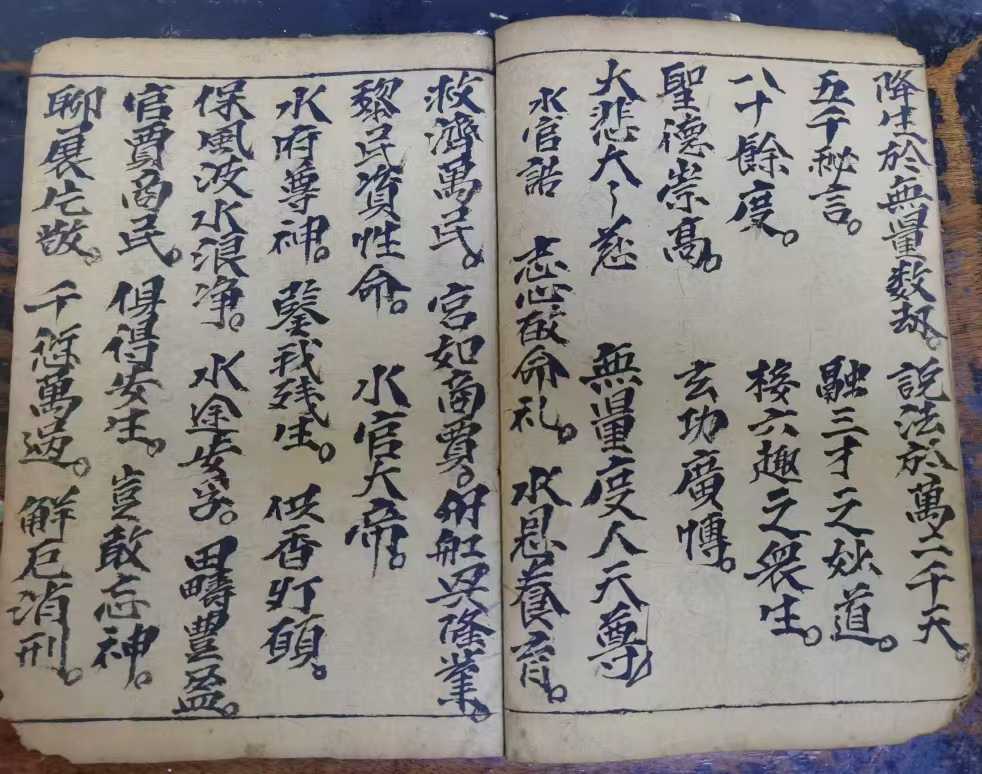 降生於無量数劫。說法於萬二千天。
五千秘言。融三才之妙道。
八十餘度。接六趣之衆生。
聖德崇高。玄功廣愽。
大悲大〻慈 無量度人天尊
水官誥 志心皈命礼。水恩養育。
救濟萬民。宮如商賈。舟舡興隆業。
黎民資性命。水官大帝。
水府尊神。鑒我残生。供香灯願。
保風波水浪净。水途安寧。田疇豊盈。
官賈商民。俱得安生。豈敢忘神。
聊展片敬。千愆萬過。解厄消刑。